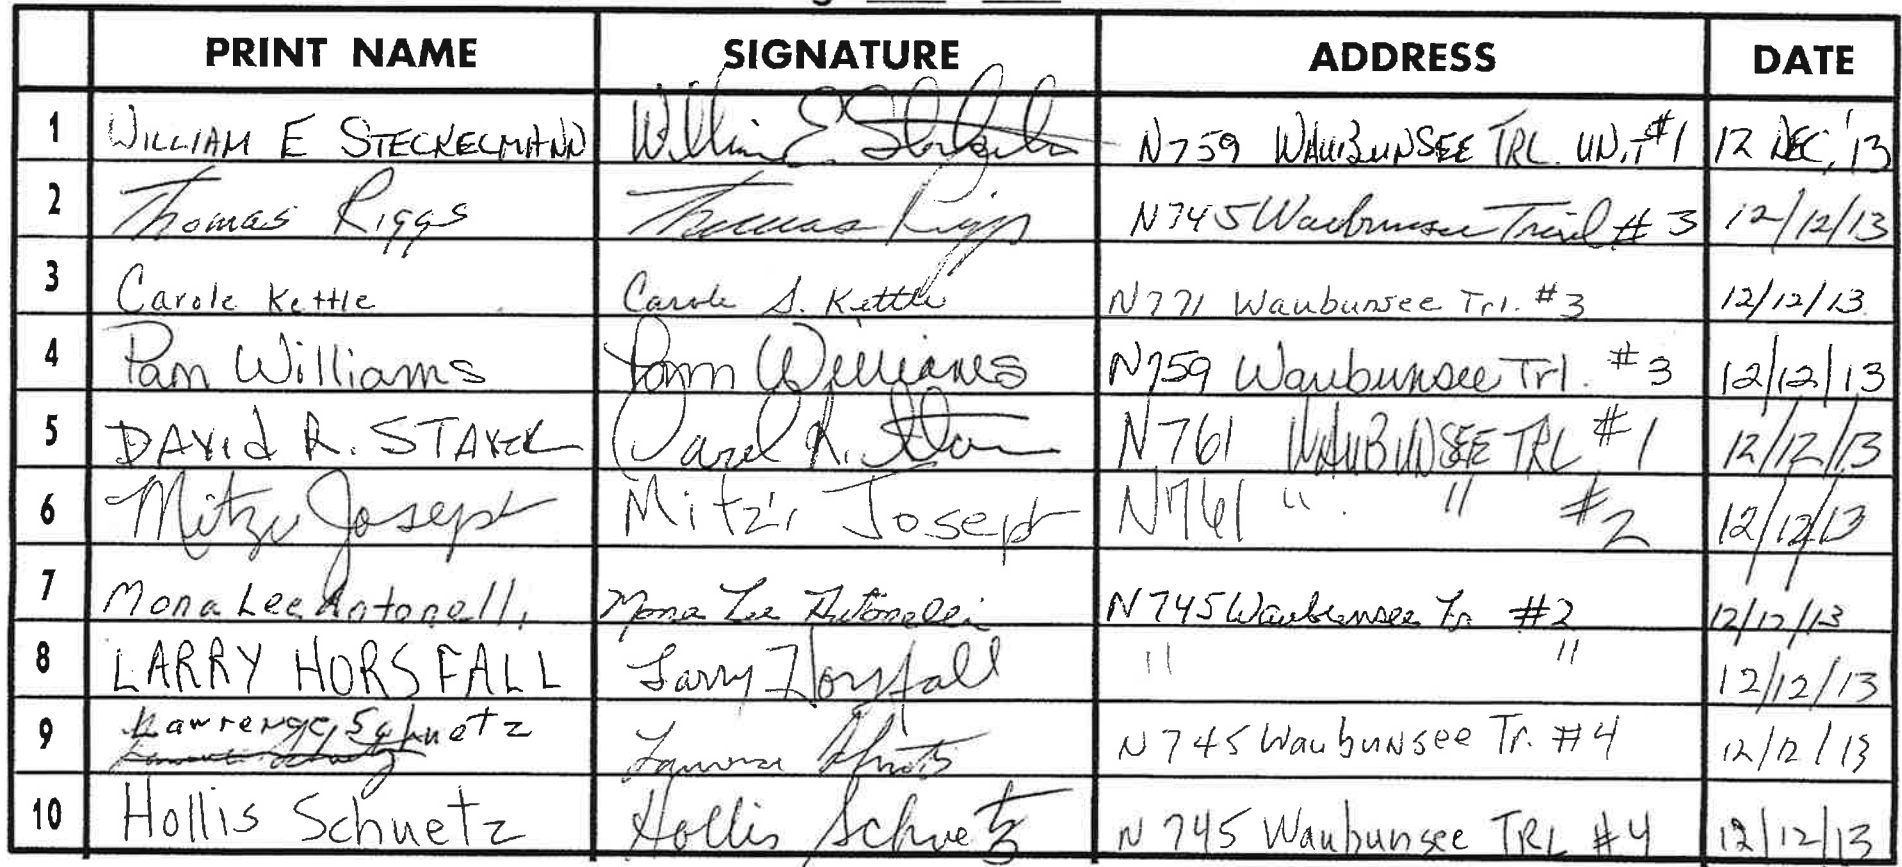 PRINT NAME SIGNATURE ADDRESS DATE
1 WILLIAM E STECKELMANN William E. Steckelmann N759 WAUBUNSEE TRL. UNIT #1 12 DEC, '13
2 Thomas Riggs Thomas Riggs N745 Waubunsee Trail # 3 12/12/13
3 Carole Kettle Carole S. Kettle N771 Waubunsee Trl. #3 12/12/13
4 Pam Williams Pam Williams N759 Waubunsee Trl. #3 12/12/13
5 DAVID R. David R. N761 WAUBUNSEE TRL #1 12/12/13
6 Mitzi Joseph Mitzi Joseph N761 " " #2 12/12/13
7 Mona Lee Antonelli Mona Lee Antonelli N745 Waubunsee Tr #2 12/12/13
8 LARRY HORSFALL Larry Horsfall " " 12/12/13
9 Lawrence Schuetz Lawrence Schuetz N745 Waubunsee Tr. #4 12/12/13
10 Hollis Schuetz Hollis Schuetz N745 Waubunsee TRL #4 12/12/13